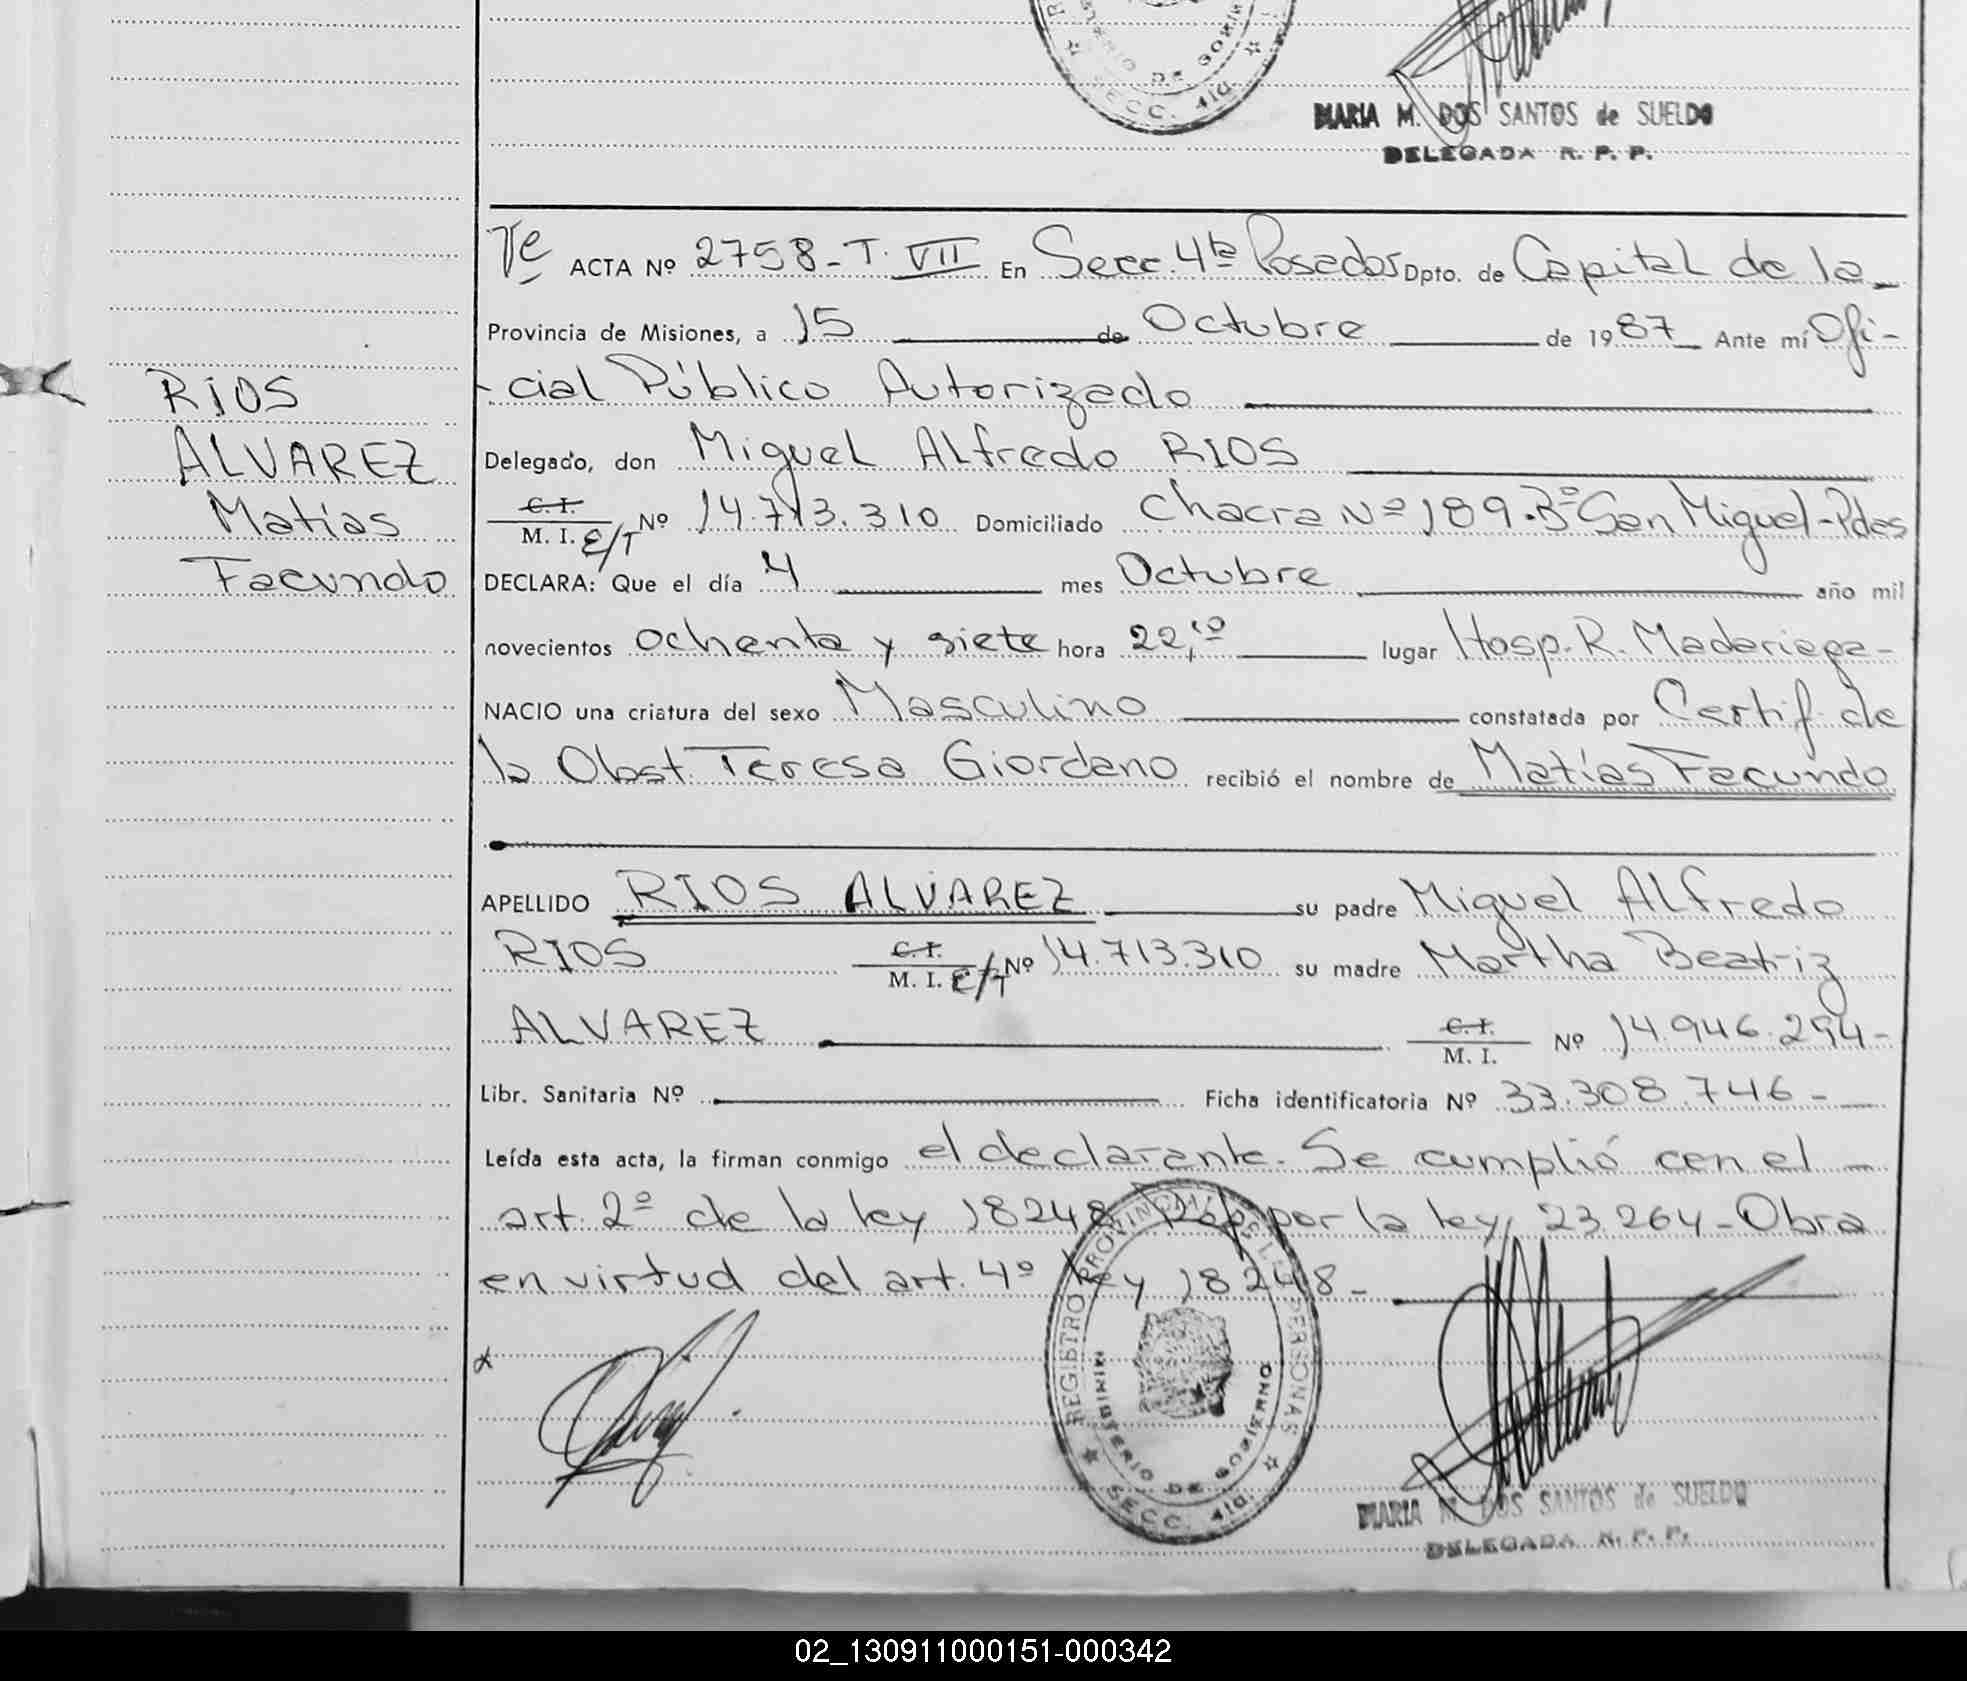 MARIA M. DOS SANTOS de SUELDO
DELEGADA R. P. P.
RIOS
ALVAREZ
Matías
Facundo
ACTA Nº 2758_T. VII En Secc. 4ta Posadas Dpto. de Capital de la_
Provincia de Misiones, a 15 de Octubre de 1987_ Ante mí Ofi-
-cial Público Autorizado
Delegado, don Miguel Alfredo RIOS
C.I. M. I. E/T Nº 14.713.310 Domiciliado Chacra Nº 189.Bº San Miguel-Pdas
DECLARA: Que el día 4 mes Octubre año mil
novecientos ochenta y siete hora 22,10 lugar Hosp. R. Madariaga-
NACIO una criatura del sexo Masculino constatada por Certif. de
la Obst. Teresa Giordano recibió el nombre de Matías Facundo
APELLIDO RIOS ALVAREZ su padre Miguel Alfredo
RIOS C.I. M. I. E/T Nº 14.713.310 su madre Martha Beatriz
ALVAREZ C.I. M. I. Nº 14.946.294-
Libr. Sanitaria Nº Ficha identificatoria Nº 33.308.746-
Leída esta acta, la firman conmigo el declarante. Se cumplió con el
art. 2º de la ley 18248 por la ley 23.264-Obra
en virtud del art. 4º ley 18248-
REGISTRO PROVINCIAL DE LAS PERSONAS
MINISTERIO DE GOBIERNO
SECC. 4ta.
MARIA M. DOS SANTOS de SUELDO
DELEGADA R. P. P.
02_130911000151-000342